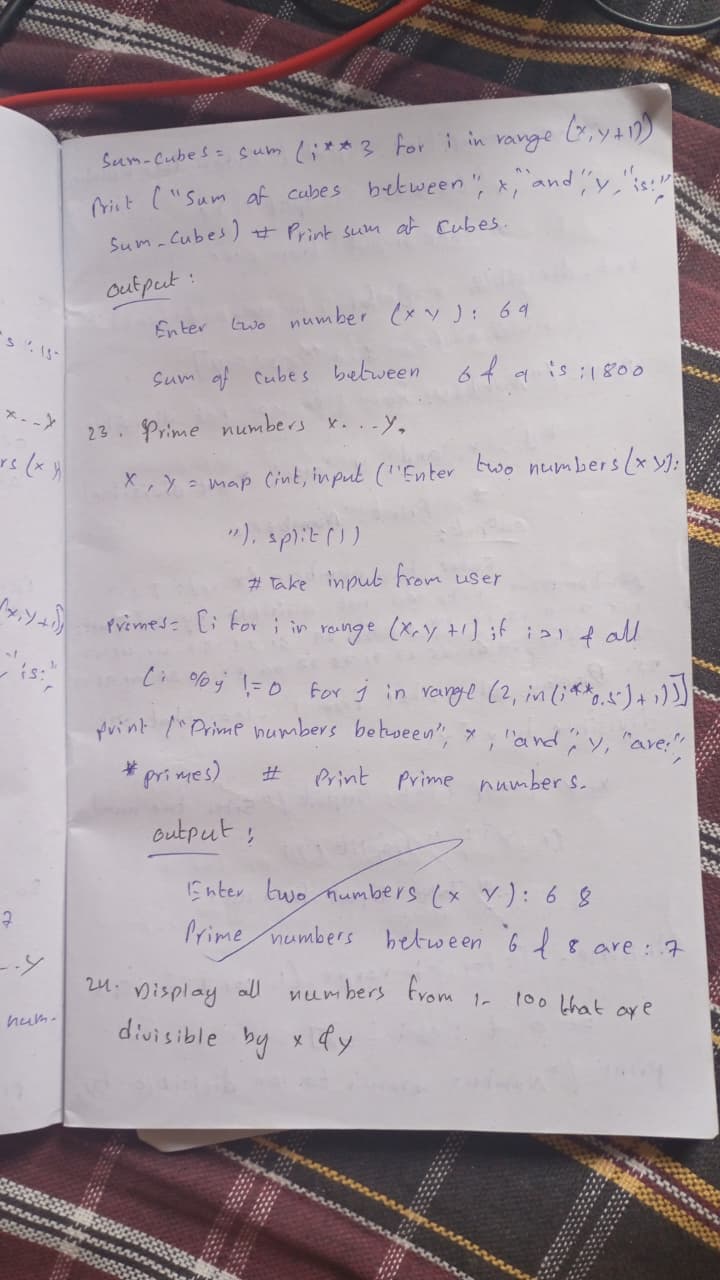 Sum-Cubes = sum (i**3 for i in range (x, y+1))
Print ("Sum of cubes between", x, "and", y, "is:",
Sum-Cubes) # Print sum of Cubes.
output :
Enter two number (x y): 6 9
Sum of cubes between 6 & 9 is : 1800
23. Prime numbers x...y.
x, y = map (int, input ("Enter two numbers (x y):
"). split ())
# Take input from user
primes = [i for i in range (x, y +1) if i>1 & all
(i % j != 0 for j in range (2, in (i**0.5)+1))]
print ("Prime numbers between", x, "and", y, "are:",
*primes) # Print Prime numbers.
output :
Enter two numbers (x y): 6 8
Prime numbers between 6 & 8 are : 7
24. Display all numbers from 1- 100 that are
divisible by x & y
x...y
(x, y+1)
is:"
num-